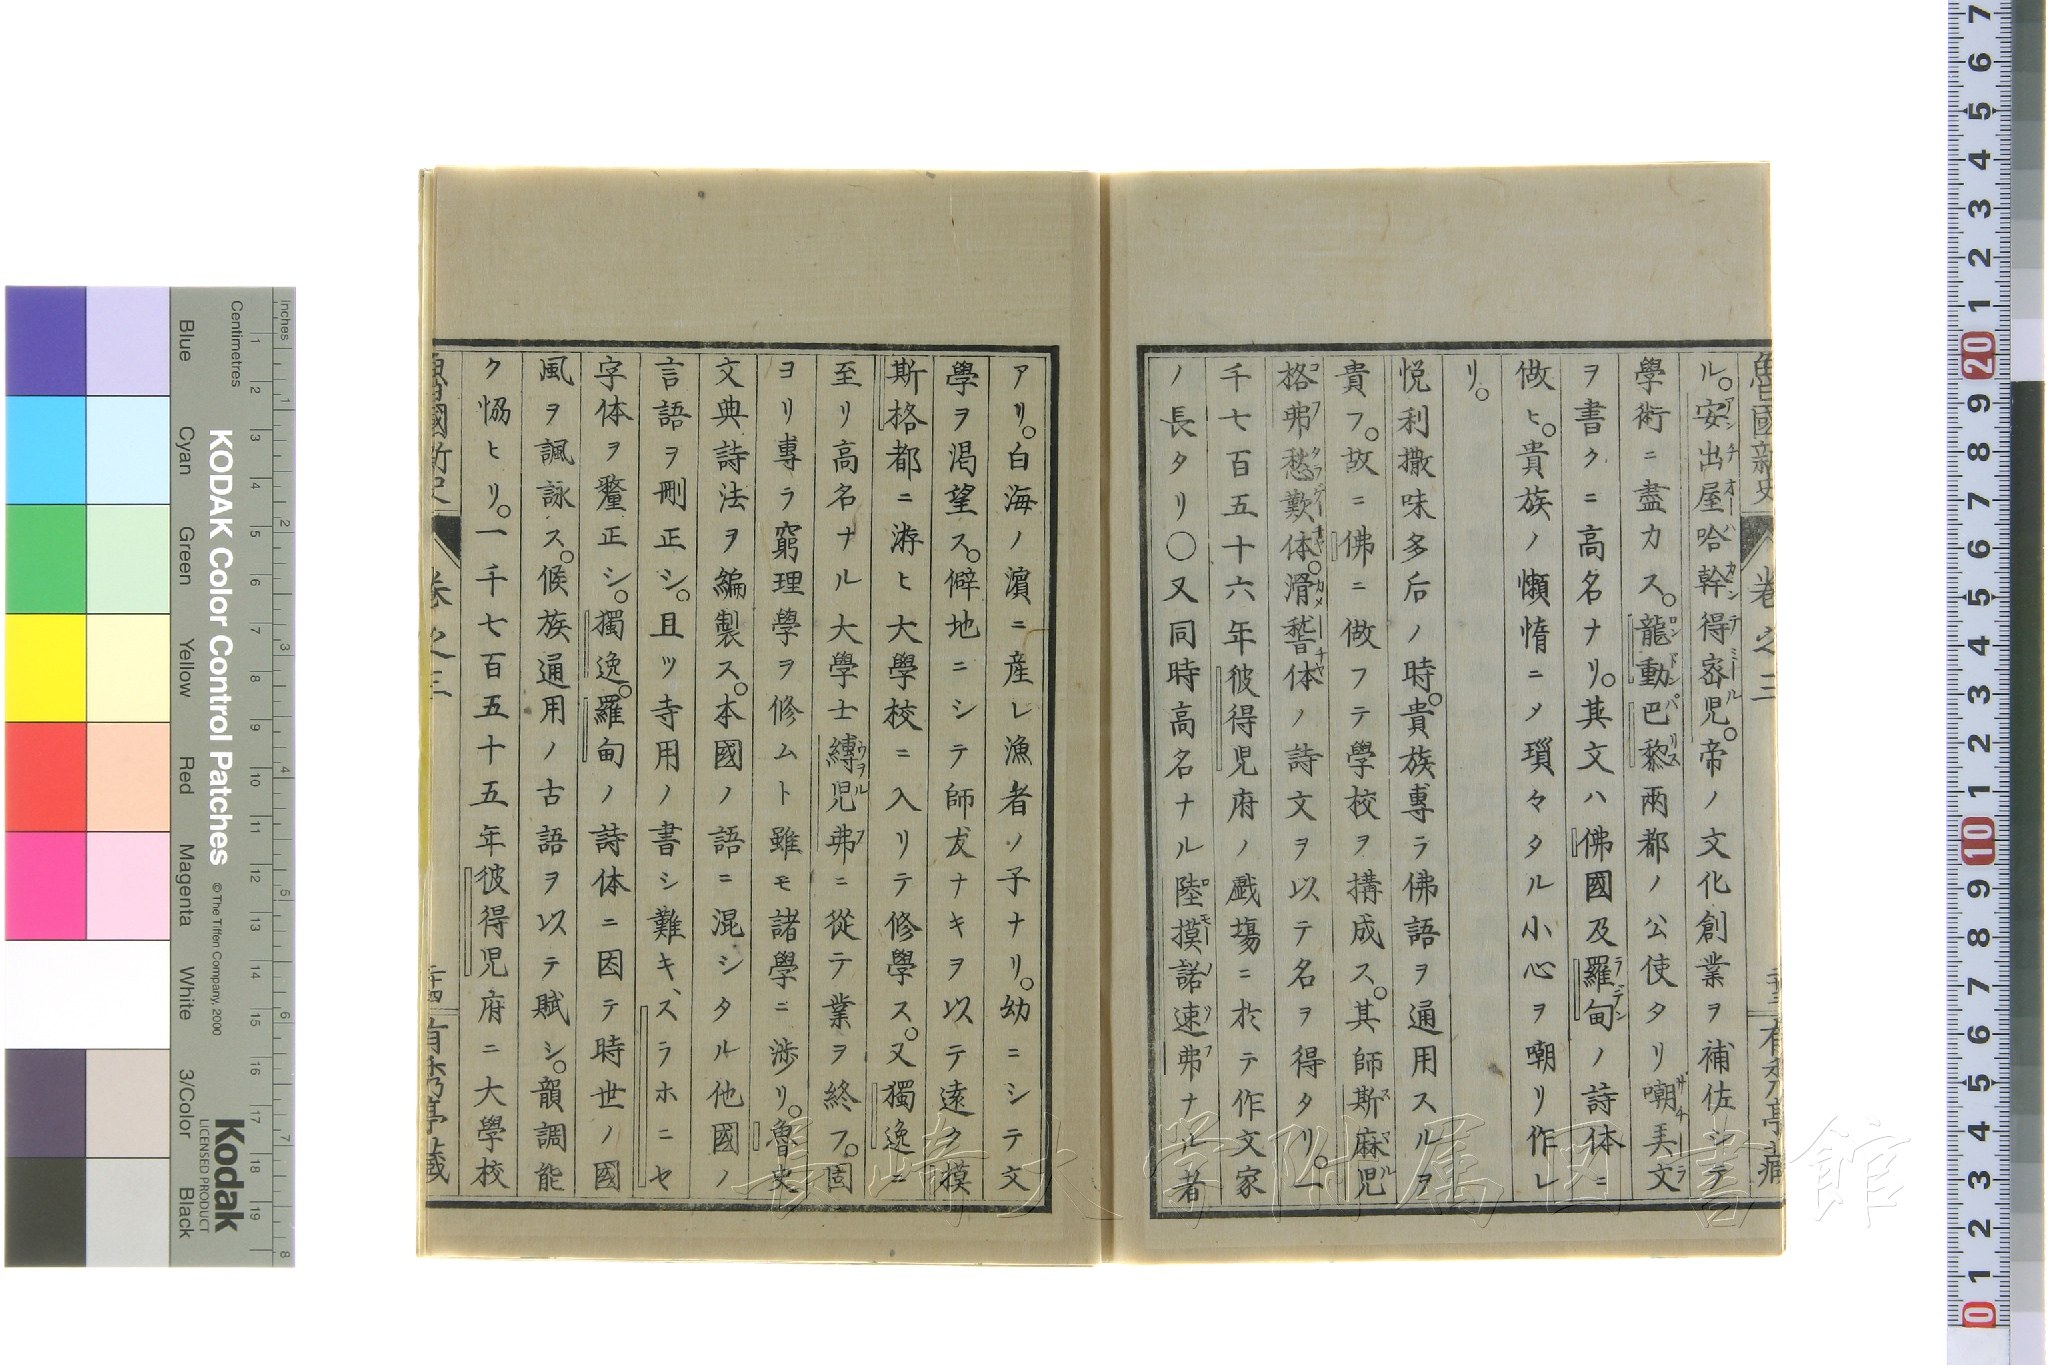 魯國新史 卷之三 二十三 有孚亭藏
ル。安出屋哈幹得密児。帝ノ文化創業ヲ補佐シテ
學術ニ盡力ス。龍動巴黎兩都ノ公使タリ嘲美文
ヲ書クニ高名ナリ。其文ハ佛國及羅甸ノ詩体ニ
倣ヒ。貴族ノ懶惰ニメ瑣々タル小心ヲ嘲リ作レ
リ。
悦利撒味多后ノ時。貴族專ラ佛語ヲ通用スルヲ
貴フ。故ニ佛ニ倣フテ學校ヲ搆成ス。其師斯麻児
格弗愁歎体。滑稽体ノ詩文ヲ以テ名ヲ得タリ。一
千七百五十六年彼得児府ノ戲塲ニ於テ作文家
ノ長タリ〇又同時高名ナル陸摸諾速弗ナル者
アリ。白海ノ濵ニ産レ漁者ノ子ナリ。幼ニシテ文
學ヲ渇望ス。僻地ニシテ師友ナキヲ以テ遠ク摸
斯格都ニ游ヒ大學校ニ入リテ修學ス。又獨逸ニ
至リ高名ナル大學士縛児弗ニ從テ業ヲ終フ。固
ヨリ專ラ窮理學ヲ修ムト雖モ諸學ニ渉リ。魯史
文典詩法ヲ編製ス。本國ノ語ニ混シタル他國ノ
言語ヲ刪正シ。且ツ寺用ノ書シ難キ、スラホニセ
字体ヲ釐正シ。獨逸。羅甸ノ詩体ニ因テ時世ノ國
風ヲ諷詠ス。候族通用ノ古語ヲ以テ賦シ。韻調能
ク恊ヒリ。一千七百五十五年彼得児府ニ大學校
魯國新史 卷之三 二十四 有孚亭藏
長崎大学附属図書館
KODAK Color Control Patches
© The Tiffen Company, 2000
Kodak
LICENSED PRODUCT
Centimetres
Inches
Blue
Cyan
Green
Yellow
Red
Magenta
White
3/Color
Black